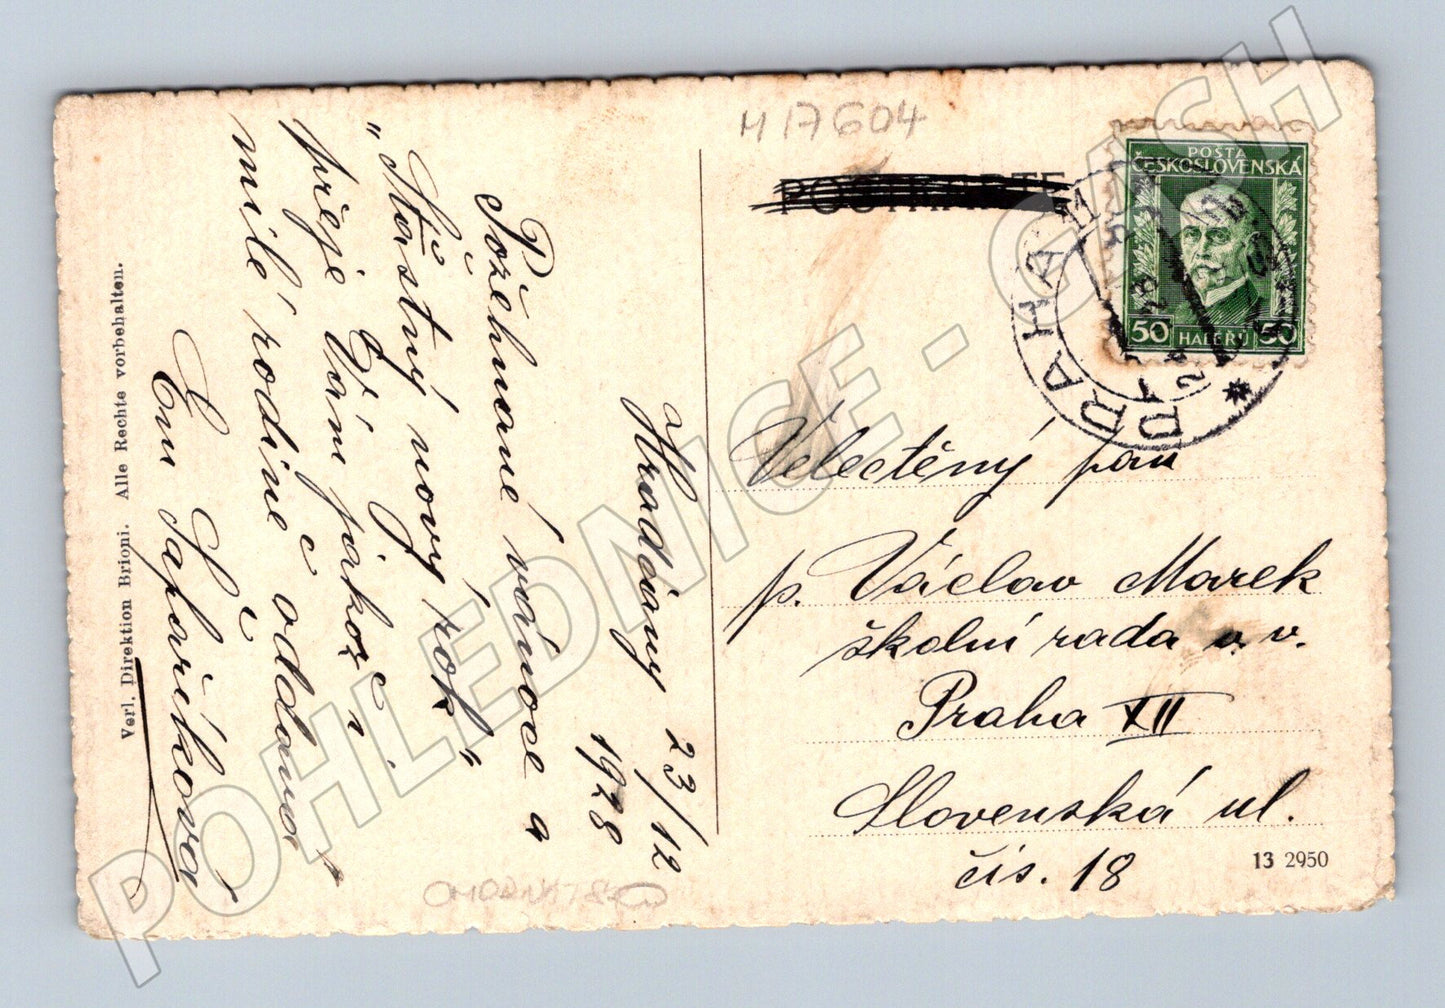 M 17604
POSTKARTE
POSTA
ČESKOSLOVENSKÁ
50 HALÉŘŮ 50
PRAHA
Hradčany 23/12
1928
Požehnané vánoce a
"Šťastný nový rok"
přeje Vám jakož i
milé rodině oddaná
Em Šafaříková
Velectěný pan
p. Václav Marek
školní rada v. v.
Praha XII
Slovenská ul.
čis. 18
13 2950
Verl. Direktion Brioni. Alle Rechte vorbehalten.
POHLEDNICE - CASH